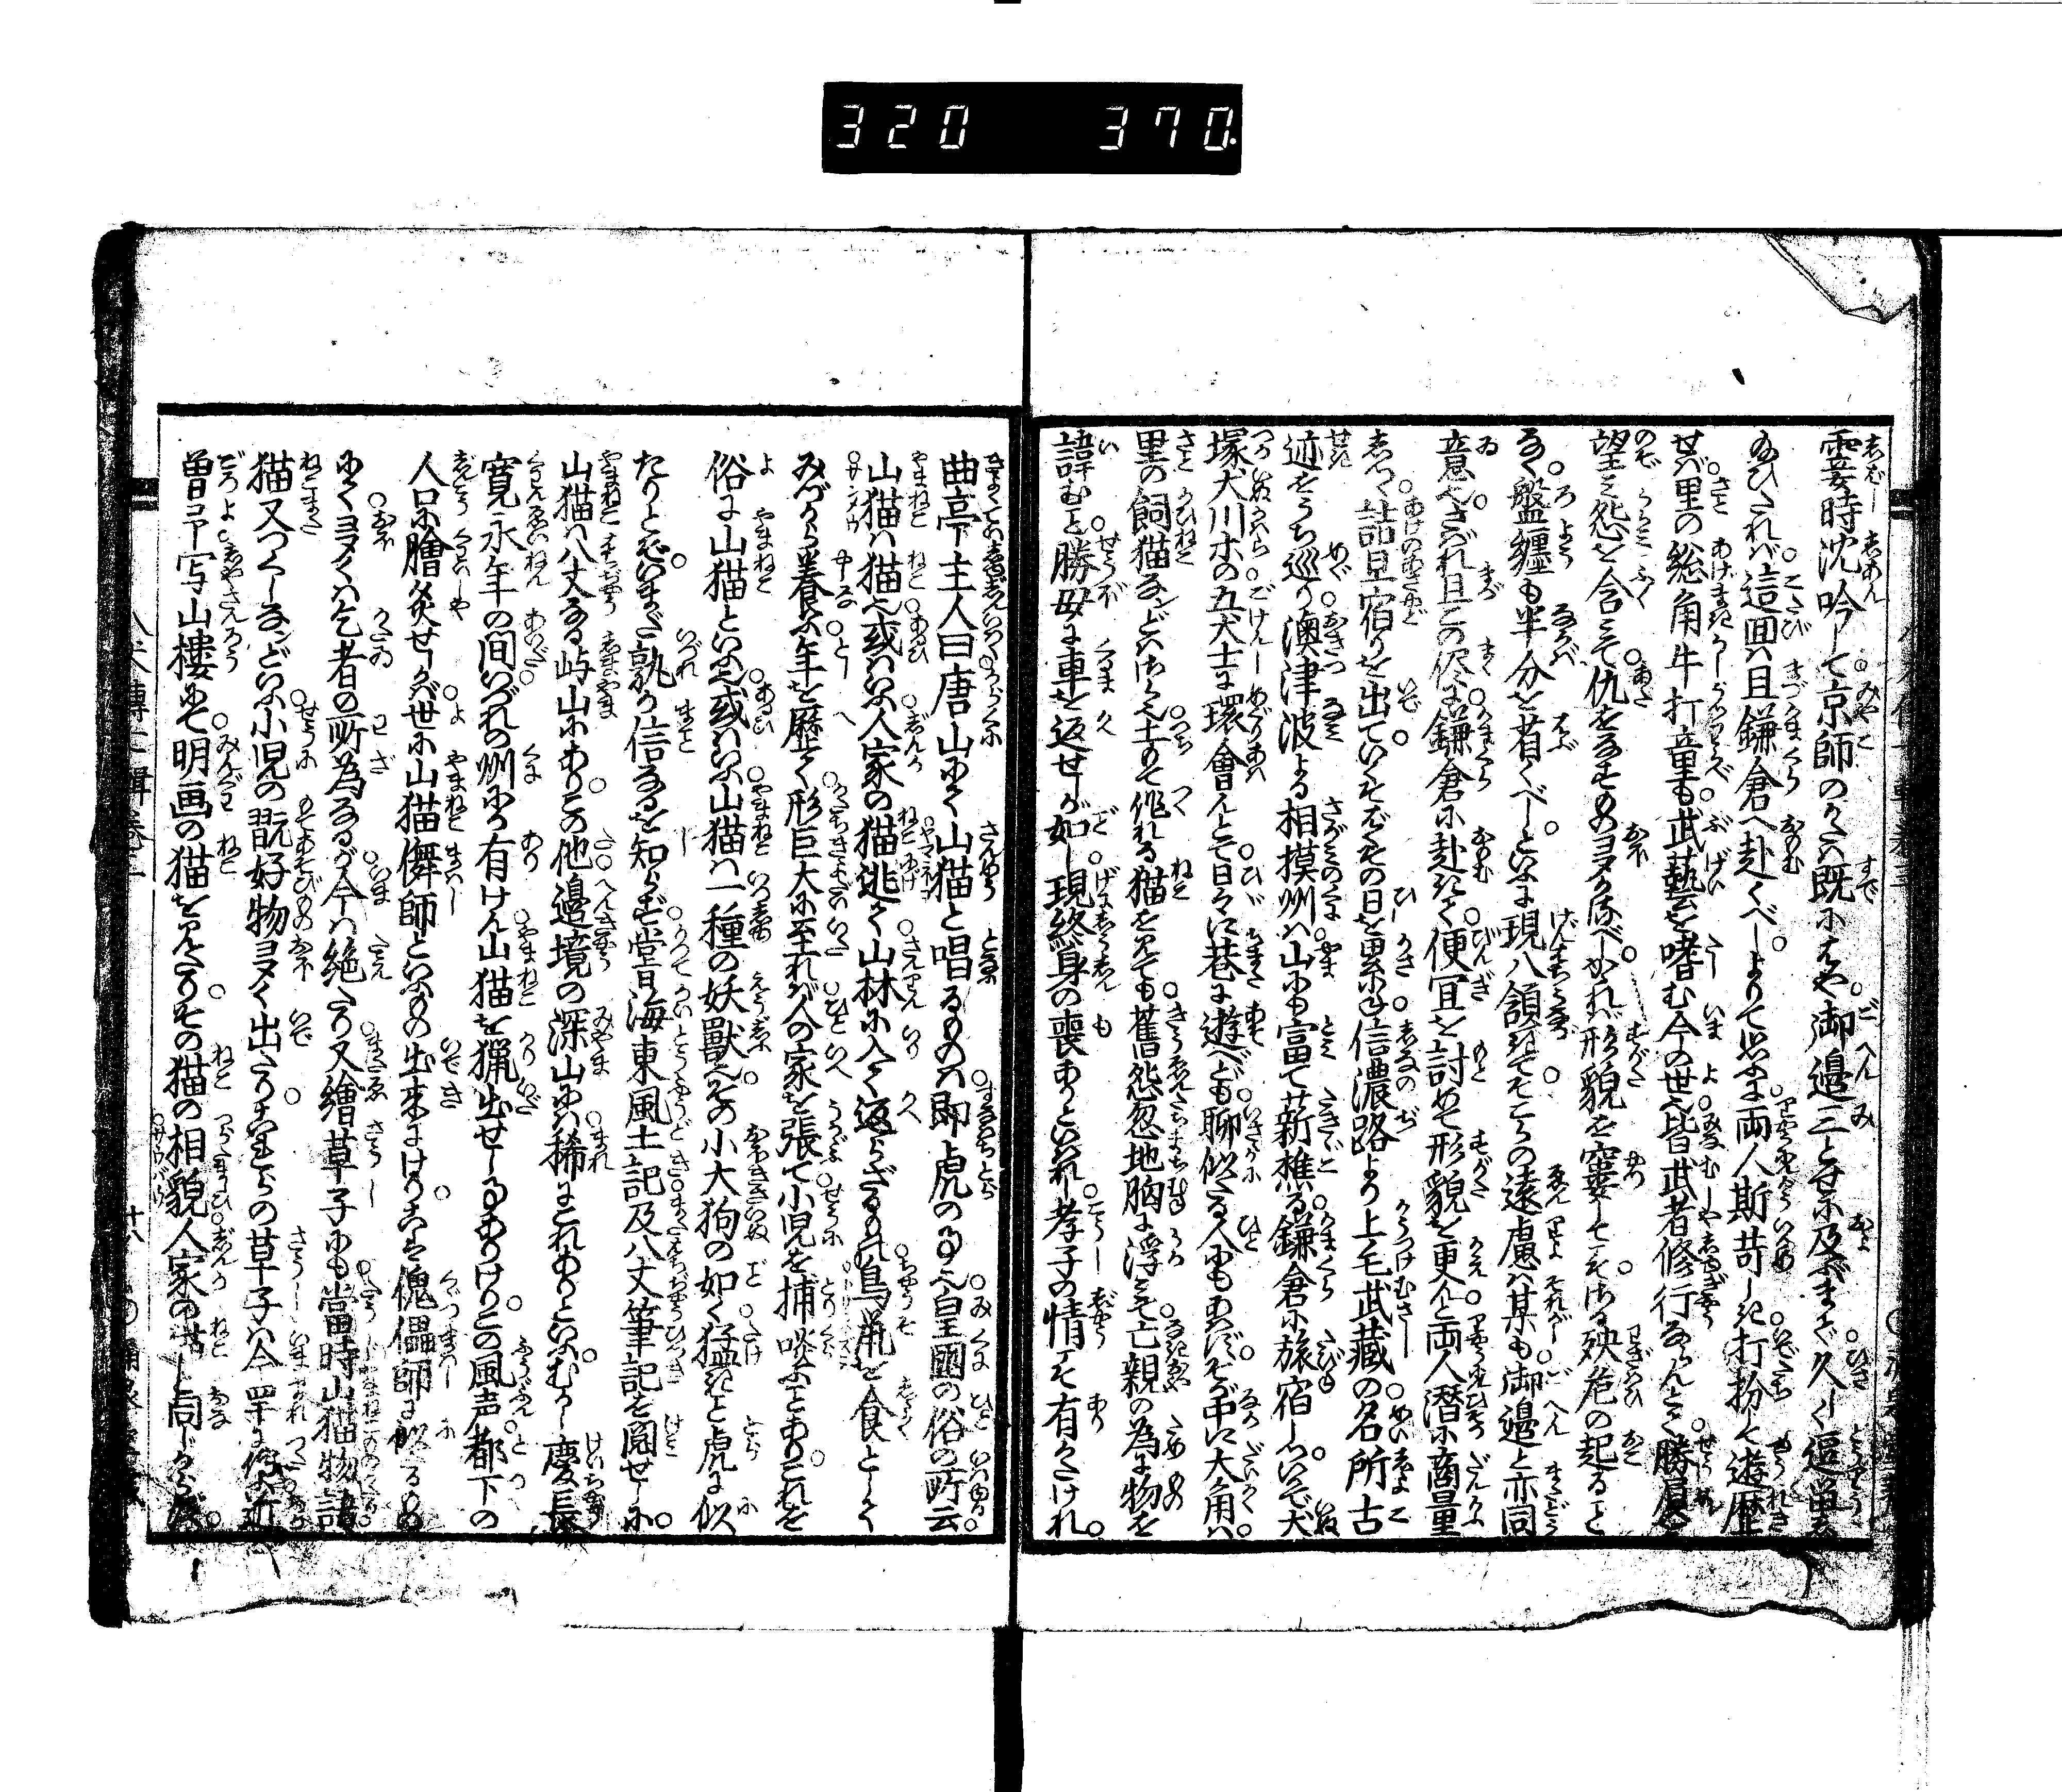 320 370.
霎時沈吟して京師のかたは既にはや御邉三と せ 及ぶまで久しく逗留
ひたれば這回は且鎌倉へ赴くべしよりて思ふに両人斯苛しき打扮にて遊歴
せば里の総角牛打童も武藝を嗜む今の世也皆武者修行ならんとて勝
望み怨を含みて仇をなすものヨタかるべしかれば形貌を窶して 殃危の起ること
なく盤纏も半分を省くべしといふに現八頷きてそこらの遠慮は某も御邉と亦同
意也さればまづこの侭に鎌倉に赴きて便宜を討めて形貌を更んと両人潜に商量
しつゝ詰旦宿りを出ていそぐその日を累ねつゝ信濃路より上毛武藏の名所古
迹をうち巡り澳津波よる相摸州は山にも富て薪樵る鎌倉に旅宿しついで犬
塚犬川ホの五犬士に環會んとて日々に巷に遊べども聊似たる人にもあはずそが中に大角は
里の飼猫などはさら也土もて作れる猫を見ても舊怨忽地胸に浮みて亡親の為に物を
諱むこと勝母に車を返せしが如し現終身の喪ありといはれし孝子の情ぞ有かたけれ
曲亭主人曰唐山にて山猫と唱るものは即虎の事也皇國の俗の所云
山猫は猫也或はいふ人家の猫逃て山林に入て返らざるもの鳥鼠を食として
みづから養ふ年を歴て形巨大に至れば人の家を張て小児を捕啖ふことありこれを
俗に山猫といふ也或はいふ山猫は一種の妖獣也その小大狗の如く猛きこと虎に似
たりと也いまだ孰か信なるを知らず嘗海東風土記及八丈筆記を閲せしに
山猫は八丈なる嶋山にありこの他邉境の深山には稀にこれありといふむかし慶長
寛永年の間いづれの州にか有けん山猫を猟出せし事ありけりこの風声都下の
人口に膾炙せしかば世に山猫儛師といふもの出来にけりこは傀儡師に似たるもの
にてヨタくは乞者の所為なるが今は絶たり又繪草子にも當時山猫物語
猫又つくしなどいふ小児の翫好物ヨタく出たりこれらの草子は今罕に傳ふ近
曾予写山樓にて明画の猫を見たりその猫の相貌人家の猫と同じからず